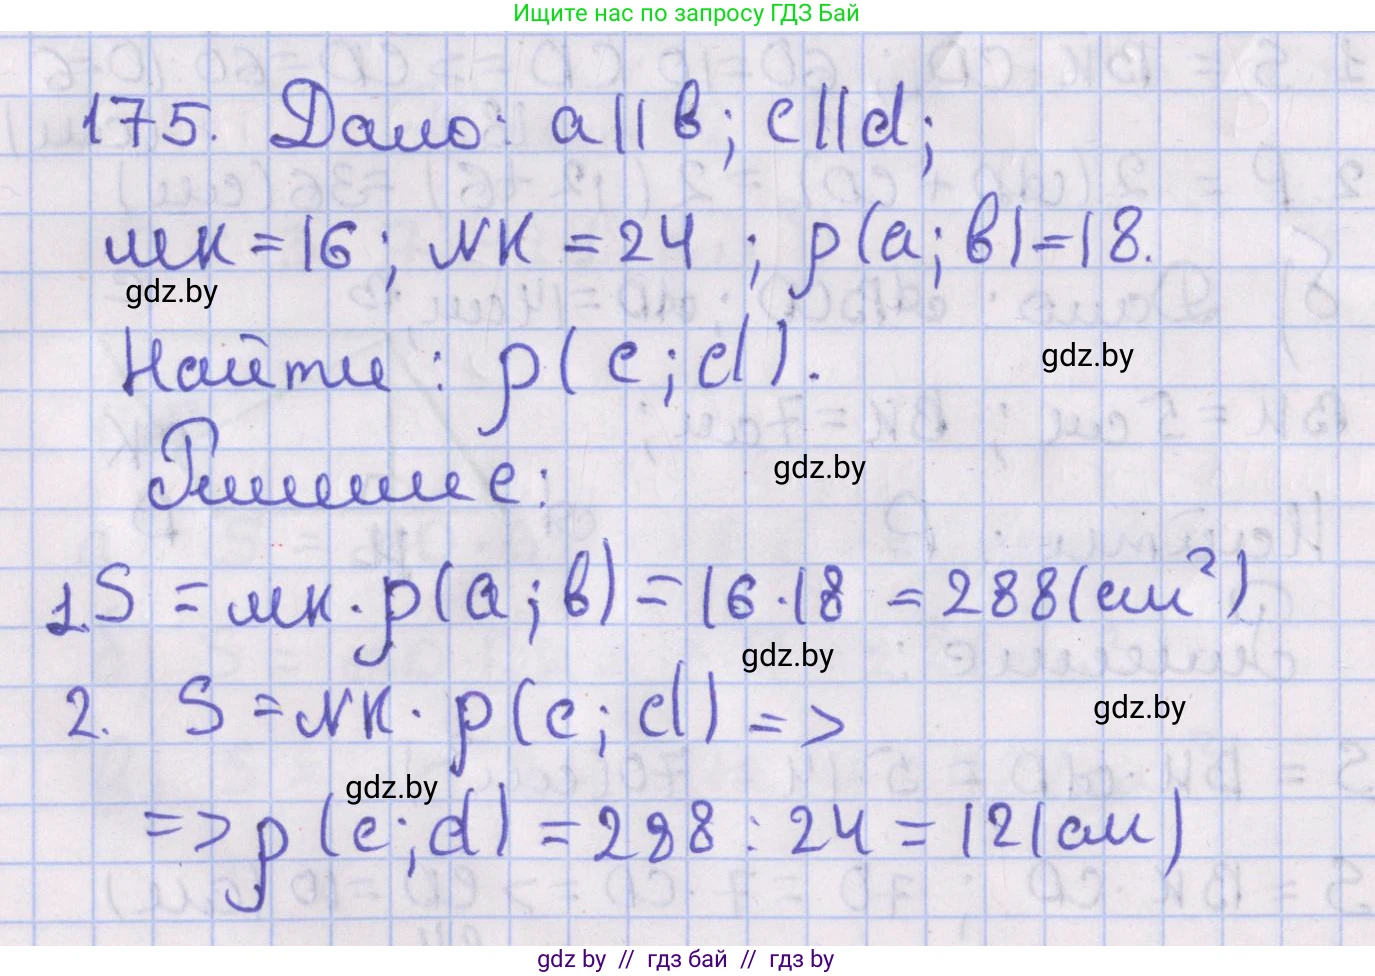 Ищите нас по запросу ГДЗ Бай
175. Дано: a||b; c||d;
мк = 16; NK = 24 ; p(a; b) = 18.
gdz.by
Найти: p(c; d).
gdz.by
Решение:
gdz.by
1. S = мк · p(a; b) = 16 · 18 = 288 (см²)
gdz.by
2. S = NK · p(c; d) =>
gdz.by
gdz.by
=> p(c; d) = 288 : 24 = 12 (см)
gdz by // гдз бай // гдз by